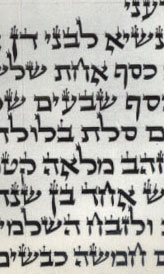 עני
נשיא לבני דן
כסף אחת שלש
סף שבעים ש
ם סלת בלולה
זהב מלאה קט
ש אחד בן שנת
ולזבח השלמי
ם חמשה כבשים